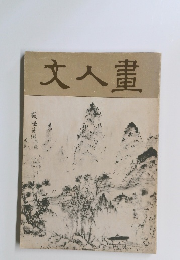 文人畫